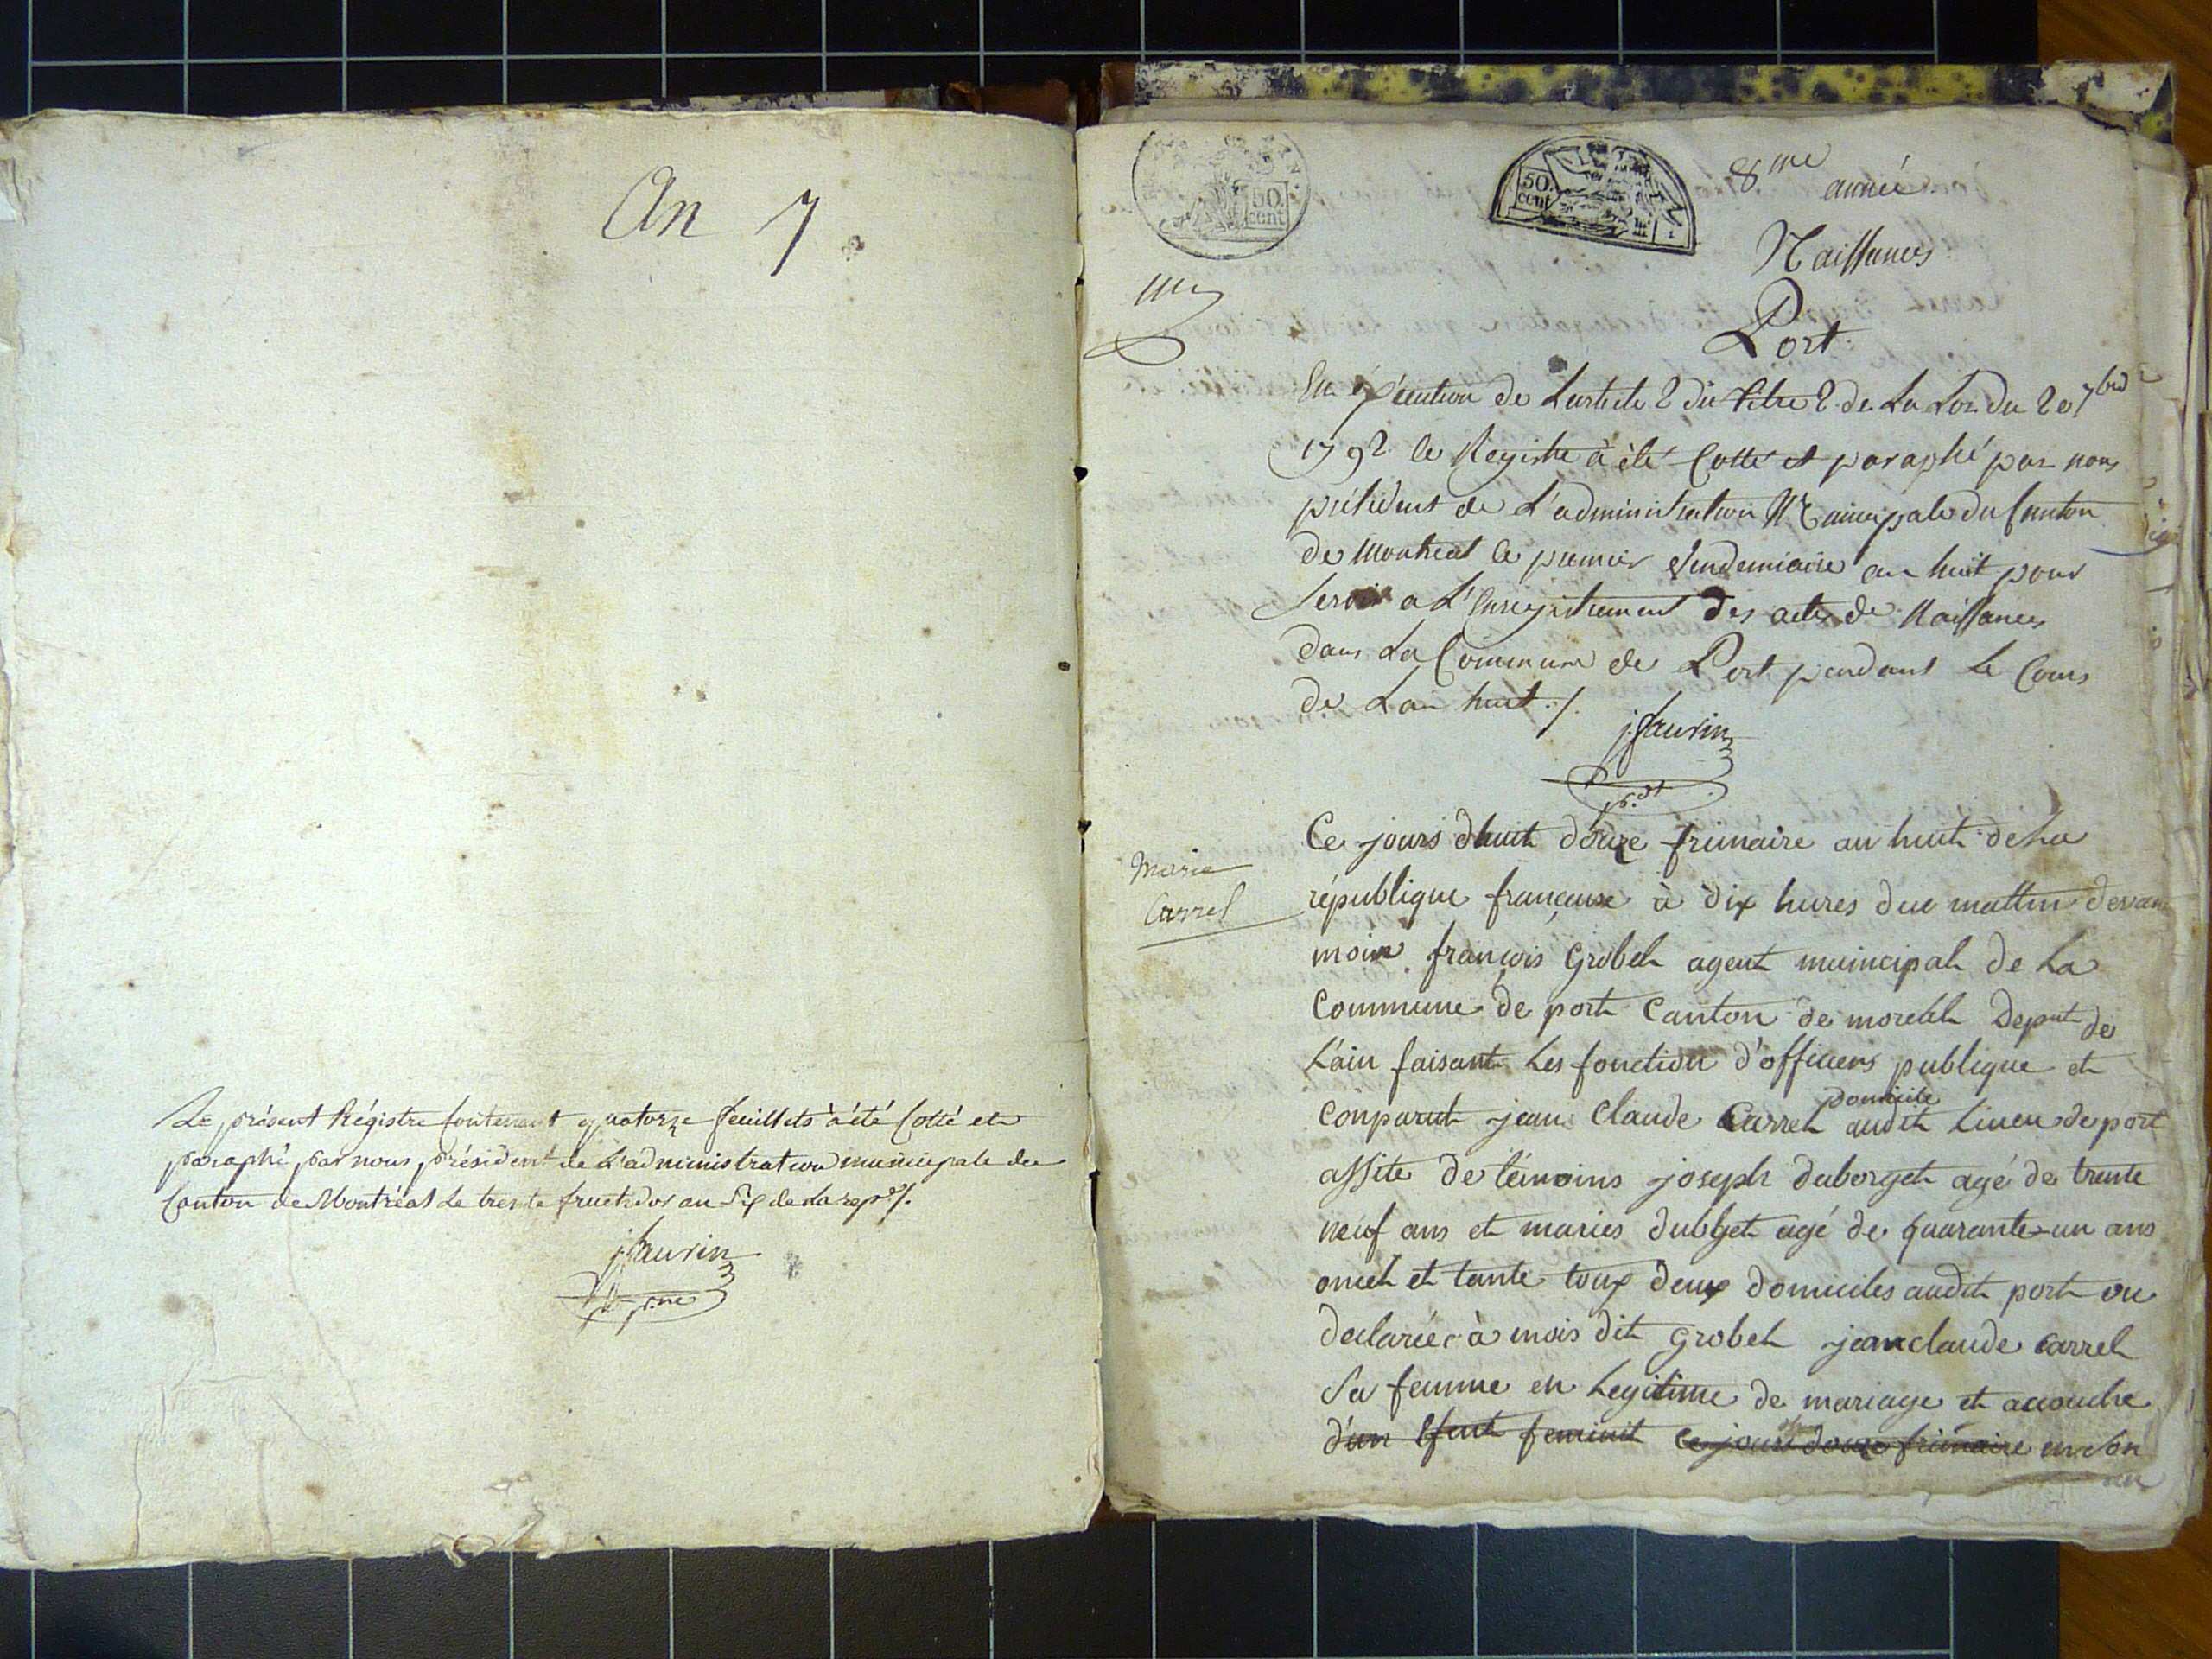 An 7
Le présent Régistre Contenant quatorze feuillets à été Cotté et
paraphé par nous président de L'administration municipale du
Canton de Montréal Le trente fructidor an Six de La rep.
jfaurin
50. cent
50. cent
8me année
Naissances
Port.
En éxécution de Larticle 2 du titre 2 de La Loi du 20 7bre
1792 le Registre à été Cotté et paraphé par nous
président de L'administration Municipale du Canton
de Montreal le premier Vendemiaire an huit pour
Servir a L'Enregistrement des actes de Naissances
dans La Commune de Port pendant Le Cours
de Lan huit ./.
jfaurin
pr.dt
Marie
Carrel
Ce jours dhuit douze frimaire an huit de La
république françause à dix hures due mattin devan
moin françois Grobel agent municipal de La
Commune de port Canton de Deput de
L'ain faisant Les fonction d'officiers publique et
domicile
conparut jean Claude Carrel audit Lineu de port
assite de témoins joseph duborget agé de trente
neuf ans et maries dubget agé de quarante-un ans
oncel et tante toux deux domiciles audit port ou
declarée à mois dit Grobel jean claude carrel
Sa femme en Legitime de mariage et acouche
d'un Efent feminit ce jour douze frimaire en son